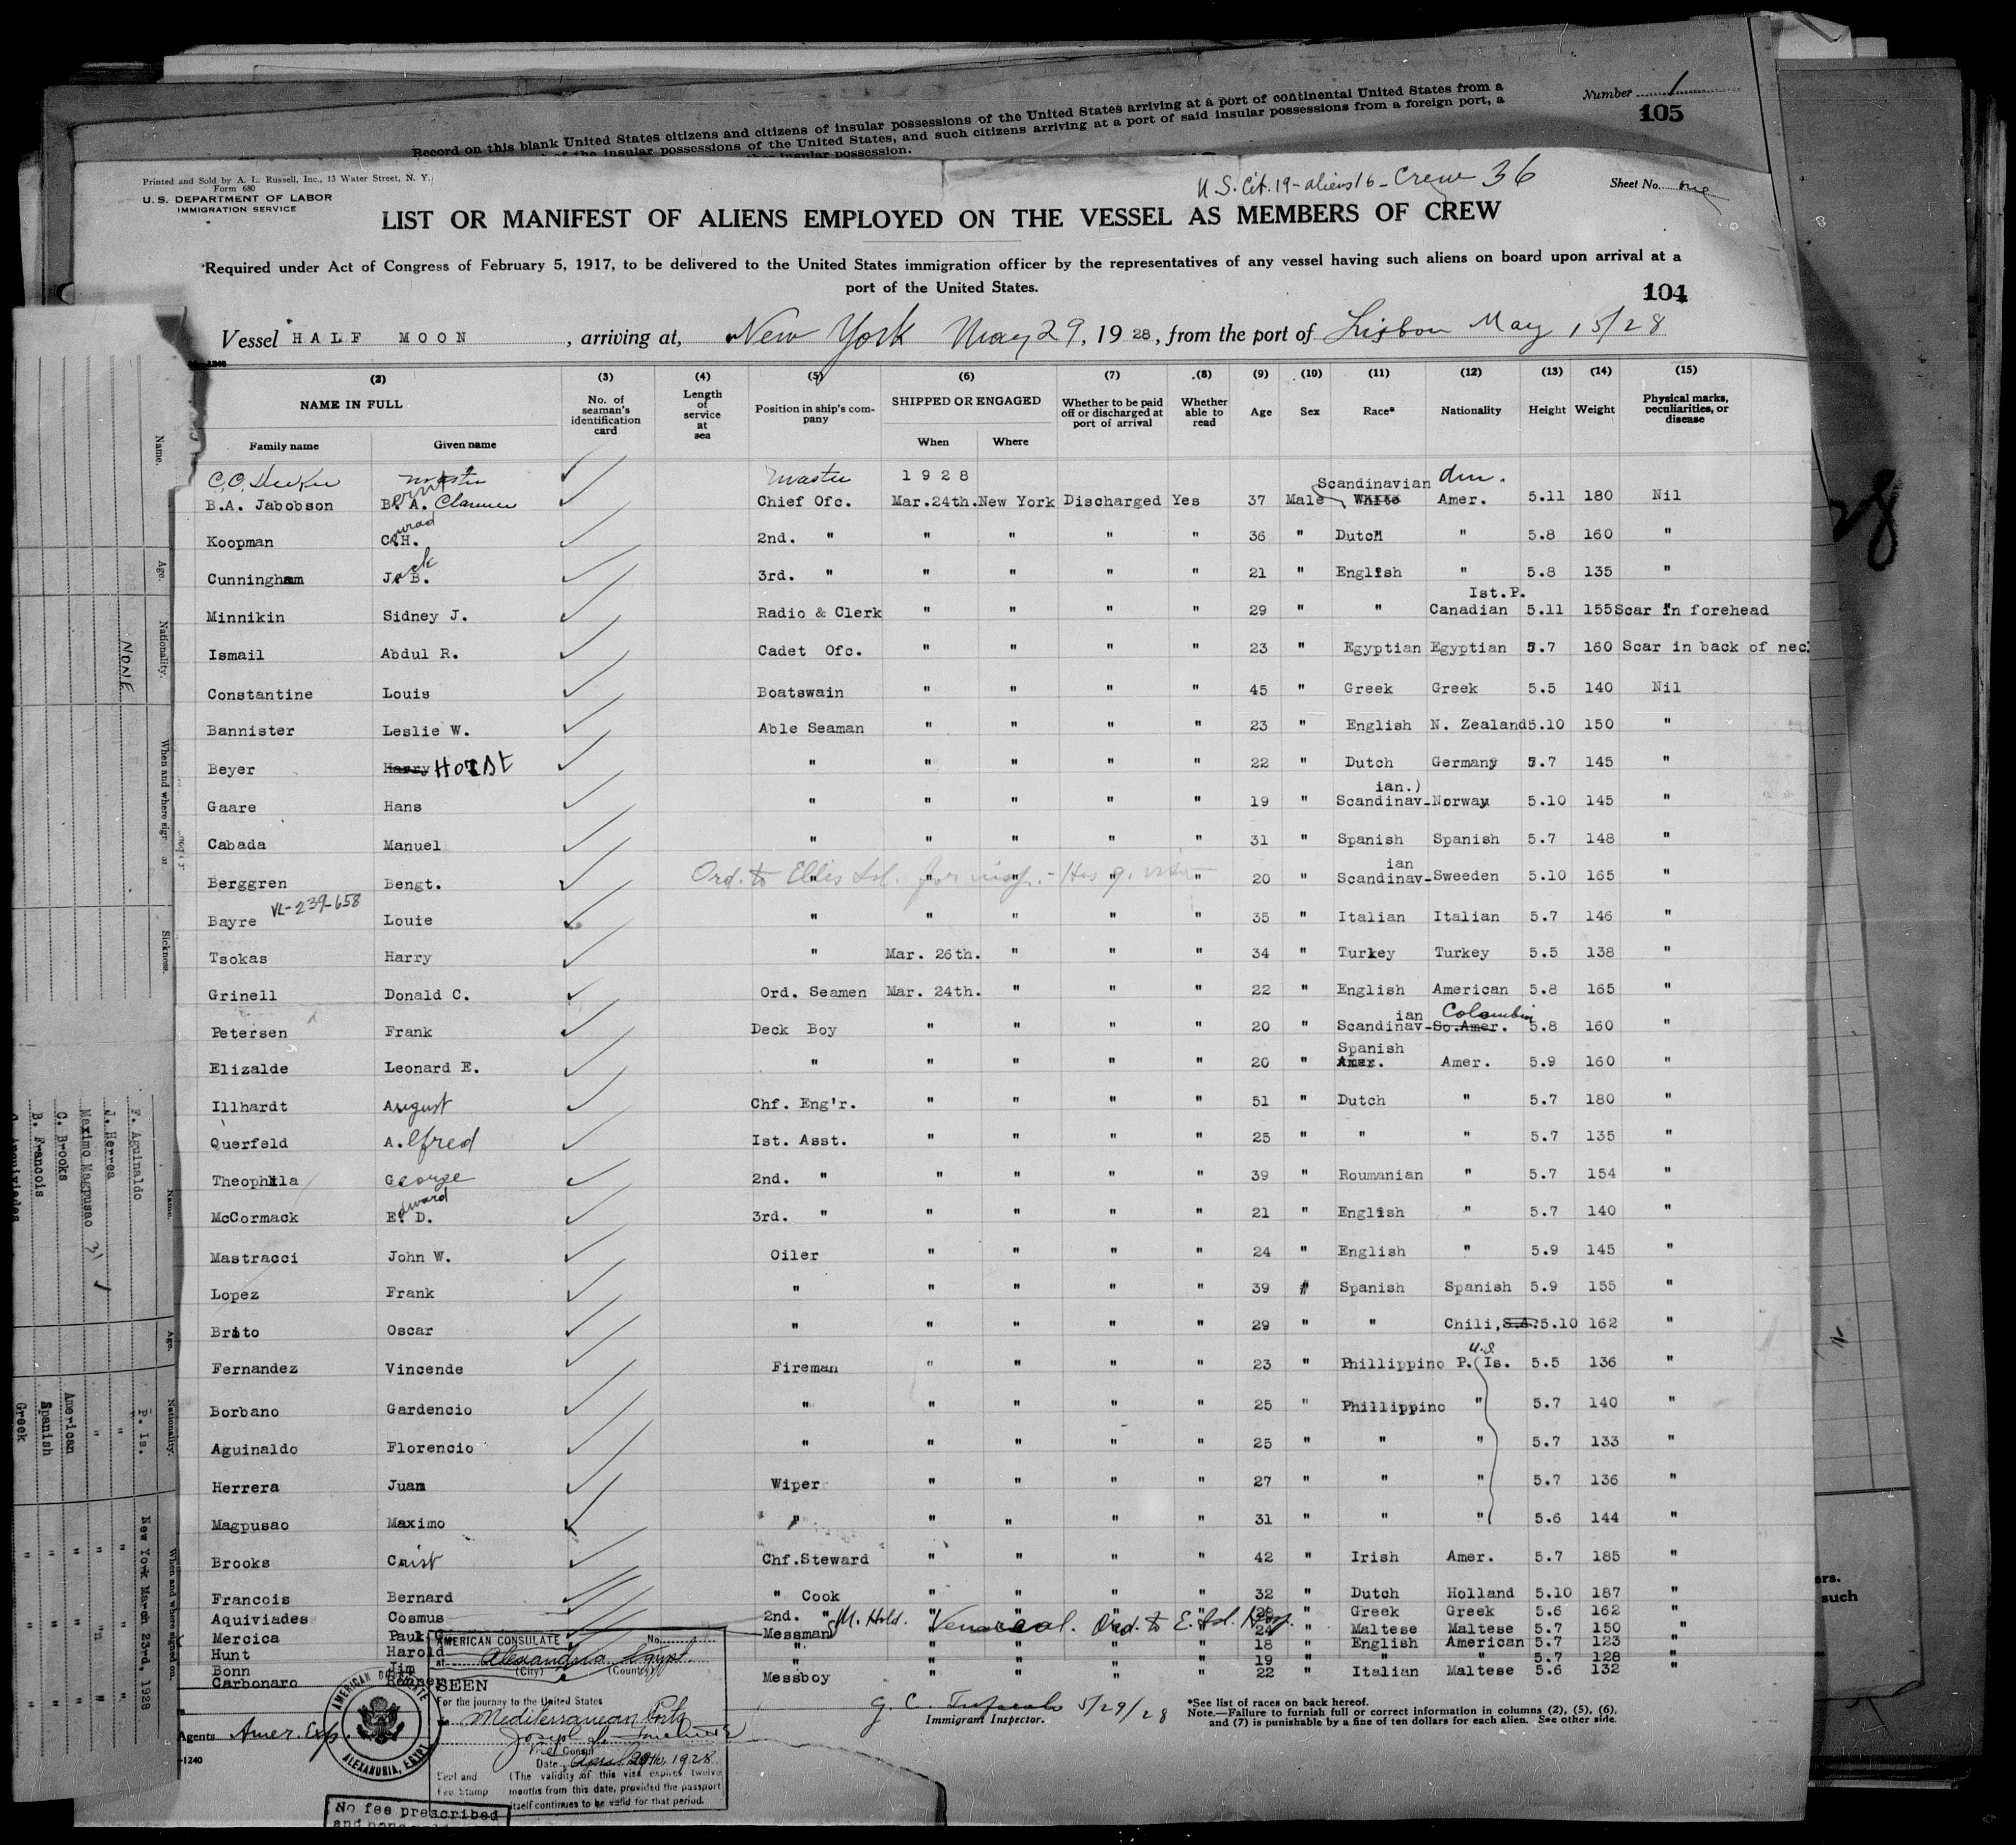 Number 1
105
Record on this blank United States citizens and citizens of insular possessions of the United States arriving at a port of continental United States from a
of the insular possessions of the United States, and such citizens arriving at a port of said insular possessions from a foreign port, a
insular possession.
Printed and Sold by A. L. Russell, Inc., 13 Water Street, N. Y.
Form 680
U. S. DEPARTMENT OF LABOR
IMMIGRATION SERVICE
U.S. Cit. 19 - aliens 16 - Crew 36
Sheet No. one
LIST OR MANIFEST OF ALIENS EMPLOYED ON THE VESSEL AS MEMBERS OF CREW
Required under Act of Congress of February 5, 1917, to be delivered to the United States immigration officer by the representatives of any vessel having such aliens on board upon arrival at a
port of the United States.
104
Vessel HALF MOON, arriving at, New York May 29, 1928, from the port of Lisbon May 15/28
(2) (3) (4) (5) (6) (7) (8) (9) (10) (11) (12) (13) (14) (15)
NAME IN FULL No. of seaman's identification card Length of service at sea Position in ship's company SHIPPED OR ENGAGED Whether to be paid off or discharged at port of arrival Whether able to read Age Sex Race* Nationality Height Weight Physical marks, peculiarities, or disease
Family name Given name When Where
C.C. master Master 1928
B.A. Jabobson B. A. Clarence Chief Ofc. Mar.24th. New York Discharged Yes 37 Male Scandinavian White Amer. 5.11 180 Nil
Koopman C.H. 2nd. " " " " " 36 " Dutch " 5.8 160 "
Cunningham Jack B. 3rd. " " " " " 21 " English " 5.8 135 "
Minnikin Sidney J. Radio & Clerk " " " " 29 " " Ist.P. Canadian 5.11 155 Scar in forehead
Ismail Abdul R. Cadet Ofc. " " " " 23 " Egyptian Egyptian 5.7 160 Scar in back of nec
Constantine Louis Boatswain " " " " 45 " Greek Greek 5.5 140 Nil
Bannister Leslie W. Able Seaman " " " " 23 " English N. Zealand 5.10 150 "
Beyer Harry Horst " " " " " 22 " Dutch Germany 5.7 145 "
Gaare Hans " " " " " 19 " Scandinav-ian.) Norway 5.10 145 "
Cabada Manuel " " " " " 31 " Spanish Spanish 5.7 148 "
Berggren Bengt. Ord. to Ellis Isl. " " " " " 20 " Scandinav-ian Sweeden 5.10 165 "
Bayre VL-239-658 Louie " " " " " 35 " Italian Italian 5.7 146 "
Tsokas Harry " Mar. 26th. " " " 34 " Turkey Turkey 5.5 138 "
Grinell Donald C. Ord. Seamen Mar. 24th. " " " 22 " English American 5.8 165 "
Petersen Frank Deck Boy " " " " 20 " Scandinav-ian So.Amer. Colombia 5.8 160 "
Elizalde Leonard E. " " " " " 20 " Spanish Amer. Amer. 5.9 160 "
Illhardt August Chf. Eng'r. " " " " 51 " Dutch " 5.7 180 "
Querfeld Alfred Ist. Asst. " " " " 25 " " " 5.7 135 "
Theophila George 2nd. " " " " " 39 " Roumanian " 5.7 154 "
McCormack Edward D. 3rd. " " " " " 21 " English " 5.7 140 "
Mastracci John W. Oiler " " " " 24 " English " 5.9 145 "
Lopez Frank " " " " " 39 " Spanish Spanish 5.9 155 "
Brito Oscar " " " " " 29 " " Chili, S.A. 5.10 162 "
Fernandez Vincende Fireman " " " " 23 " Phillippino P. Is. U.S 5.5 136 "
Borbano Gardencio " " " " " 25 " Phillippino " 5.7 140 "
Aguinaldo Florencio " " " " " 25 " " " 5.7 133 "
Herrera Juan Wiper " " " " 27 " " " 5.7 136 "
Magpusao Maximo " " " " " 31 " " " 5.6 144 "
Brooks Chf.Steward " " " " 42 " Irish Amer. 5.7 185 "
Francois Bernard " Cook " " " " 32 " Dutch Holland 5.10 187 "
Aquiviades Cosmus 2nd. " " " " " 28 " Greek Greek 5.6 162 "
Mercica Paul Messman M. Hold. Venereal. Ord. to E. Isl. Hosp. 24 " Maltese Maltese 5.7 150 "
Hunt Harold " " " " " 18 " English American 5.7 123 "
Bonn Jim " " " " " 19 " " " 5.7 128 "
Carbonaro Messboy " " " " 22 " Italian Maltese 5.6 132 "
AMERICAN CONSULATE No.
at Alexandria, Egypt
(City) (Country)
SEEN
For the journey to the United States
Mediterranean Ports
Joseph
Vice Consul
Date April 20th, 1928
Seal and Fee Stamp
(The validity of this visa expires twelve
months from this date, provided the passport
itself continues to be valid for that period.
AMERICAN CONSULATE
ALEXANDRIA, EGYPT
No fee prescribed
Agents Amer. Exp.
-1240
G. C. 5/29/28
Immigrant Inspector.
*See list of races on back hereof.
Note.—Failure to furnish full or correct information in columns (2), (5), (6),
and (7) is punishable by a fine of ten dollars for each alien. See other side.
Name.
Age.
Nationality.
NONE
When and where sig
Sickness.
Name.
Age.
Nationality.
When and where signed on.
F. Aguinaldo P. Is. New York March 23rd, 1928
J. Herrea " " "
Maximo Magpusao 31 " " "
C. Brooks American " "
B. Francois Spanish " "
Greek " "
ers.
such